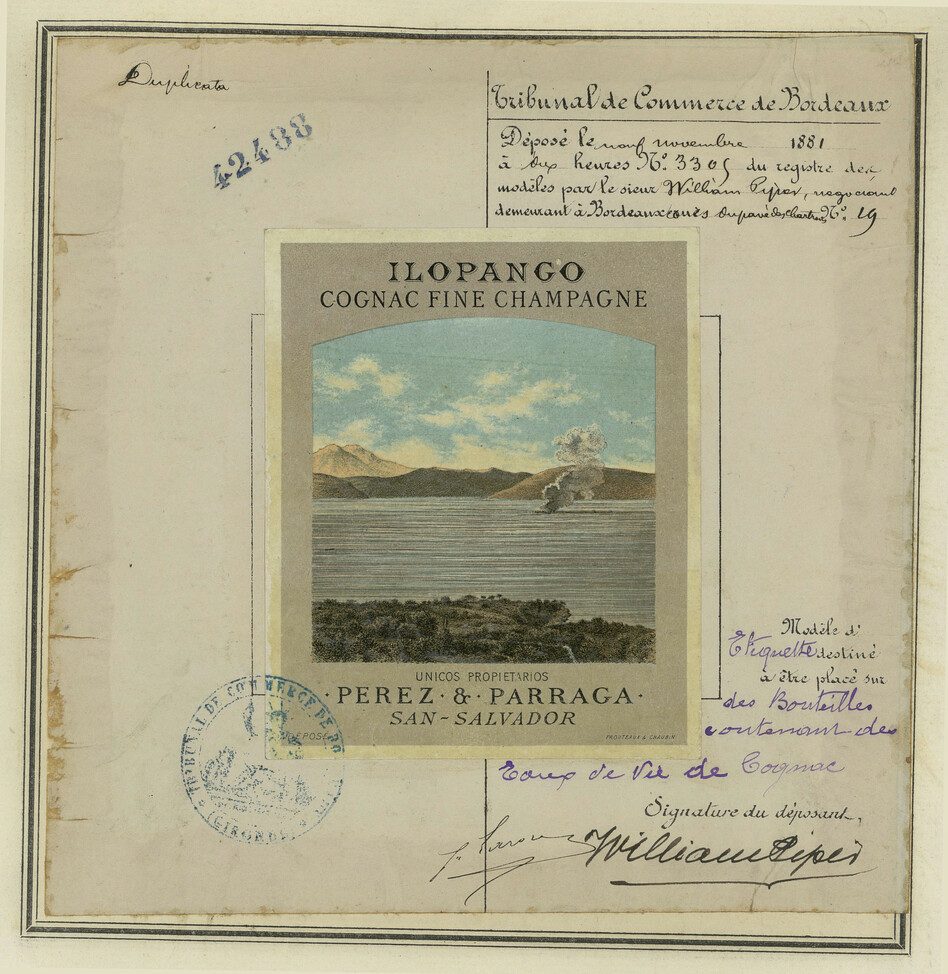 Duplicata
42488
Tribunal de Commerce de Bordeaux
Déposé le neuf novembre 1881
à dix heures N° 3305 du registre des
modèles par le sieur William Piper, negociant
demeurant à Bordeaux quais du pavé des Chartrons N° 19
ILOPANGO
COGNAC FINE CHAMPAGNE
UNICOS PROPIETARIOS
· PEREZ · & · PARRAGA ·
SAN-SALVADOR
DÉPOSÉ
TRIBUNAL DE COMMERCE DE BO
(GIRONDE)
Modèle d'
Etiquette destiné
à être placé sur
des Bouteilles
contenant des
Eaux de Vie de Cognac
Signature du déposant,
William Piper